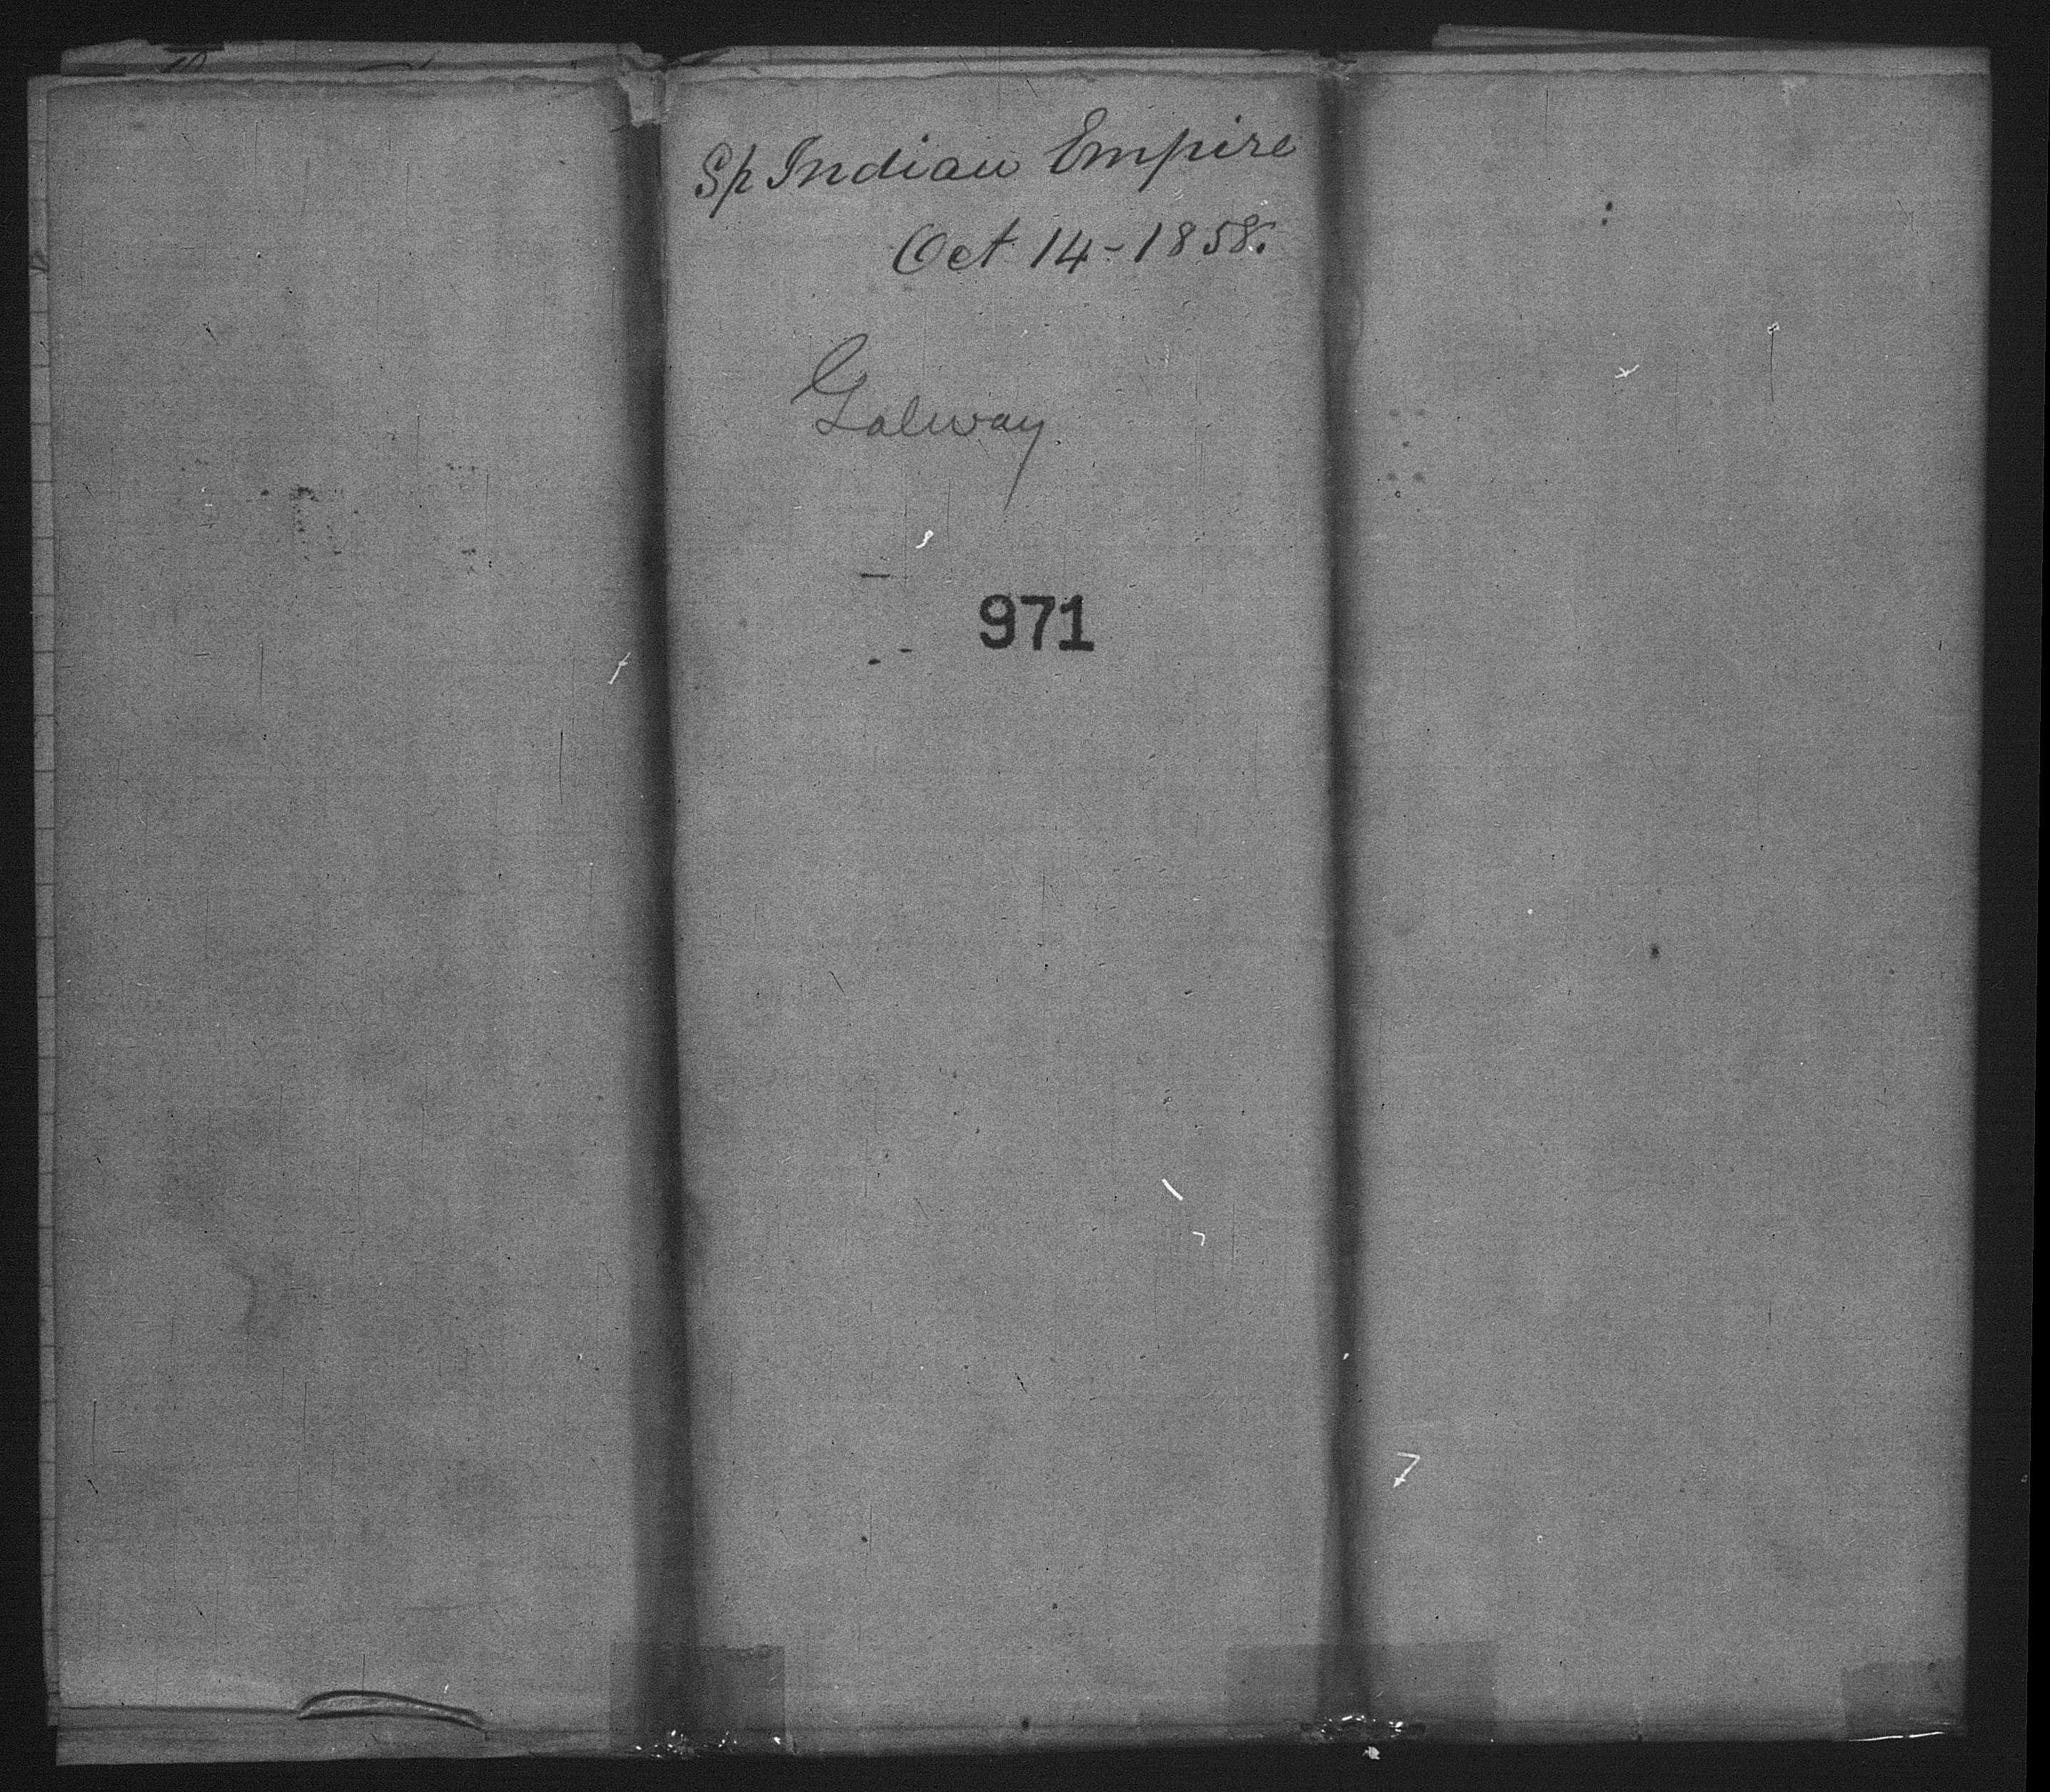 Sp Indian Empire
Oct 14-1858.
Galway
971